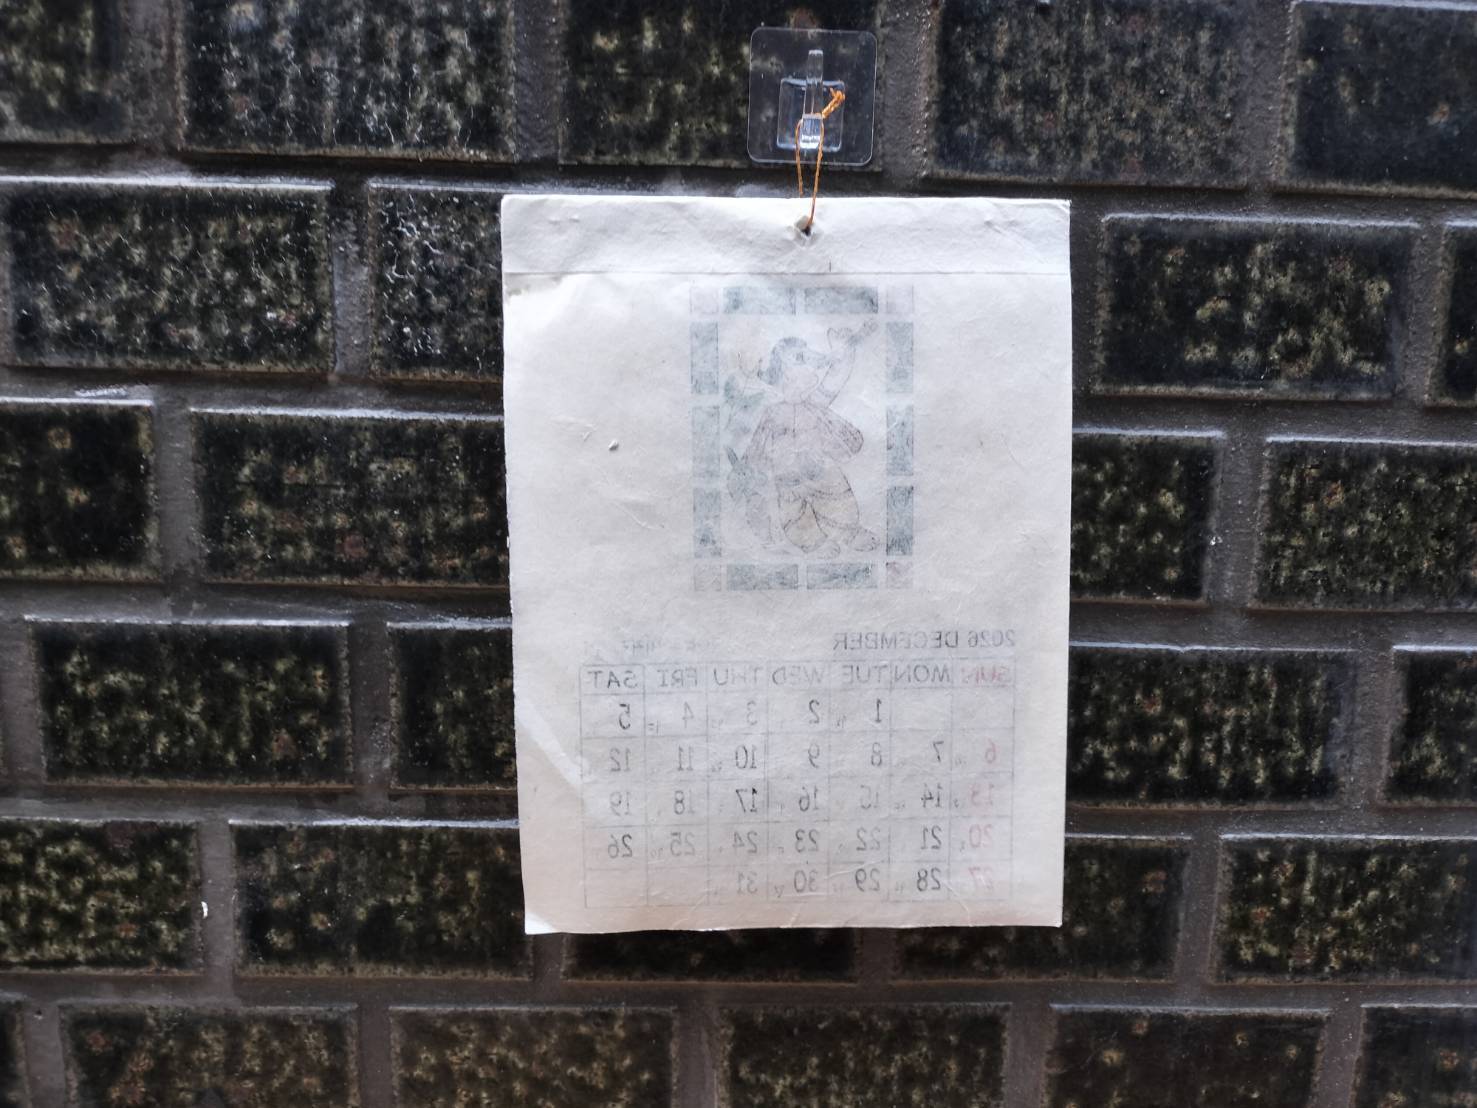 2026 DECEMBER
SUN MON TUE WED THU FRI SAT
1 2 3 4 5
6 7 8 9 10 11 12
13 14 15 16 17 18 19
20 21 22 23 24 25 26
27 28 29 30 31